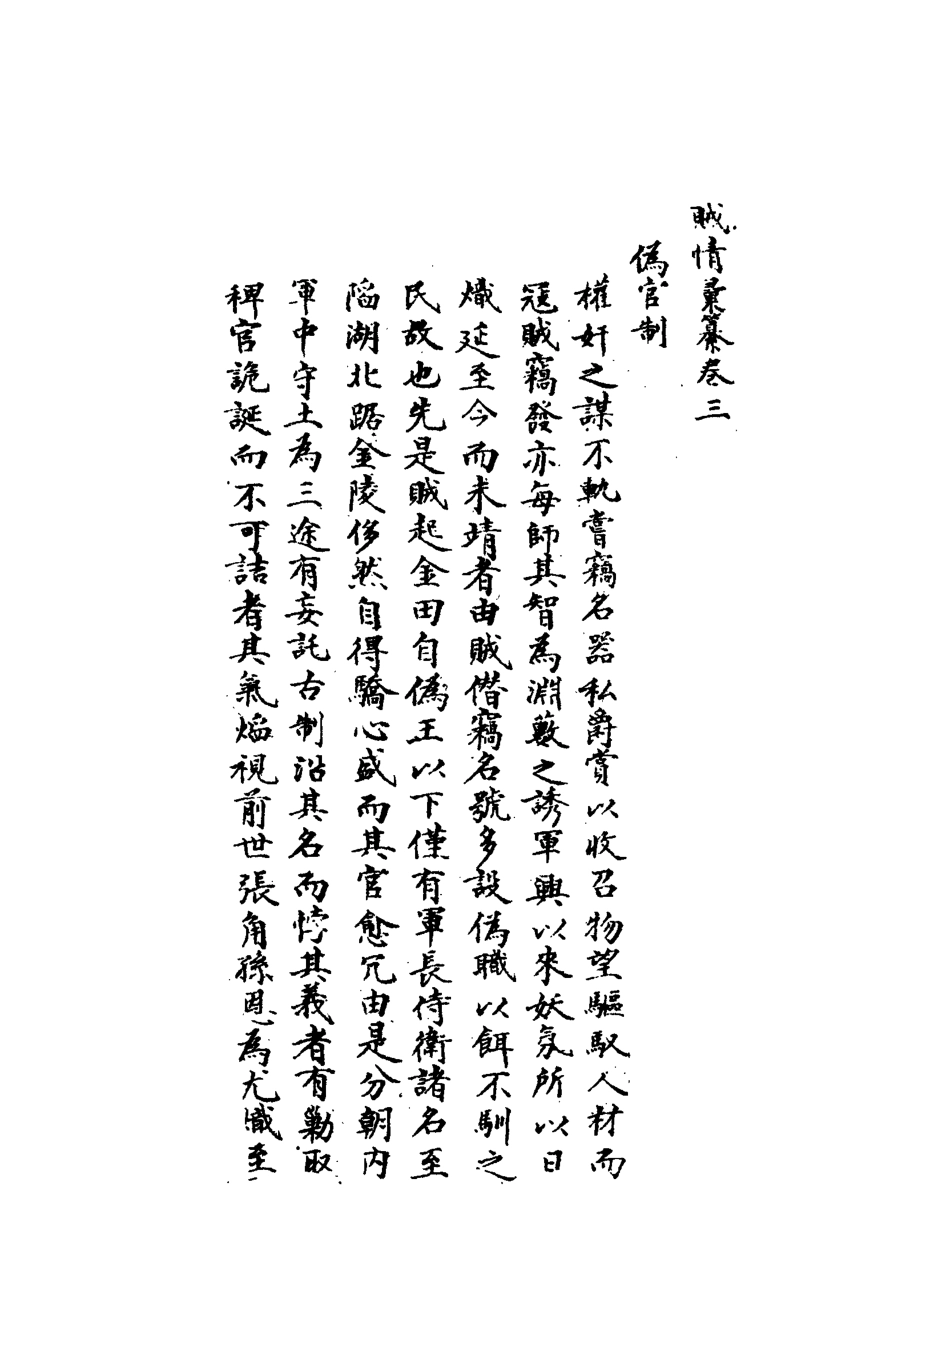 賊情彙纂卷三
偽官制
權奸之謀不軌嘗竊名器私爵賞以收召物望驅馭人材而
冦賊竊發亦每師其智為淵藪之誘軍興以來妖氛所以日
熾延至今而未靖者由賊僭竊名號多設偽職以餌不馴之
民故也先是賊起金田自偽王以下僅有軍長侍衛諸名至
陷湖北踞金陵侈然自得驕心盛而其官愈冗由是分朝内
軍中守土為三途有妄託古制沿其名而悖其義者有勦取
稗官詭誕而不可詰者其氣焰視前世張角孫恩為尤熾至